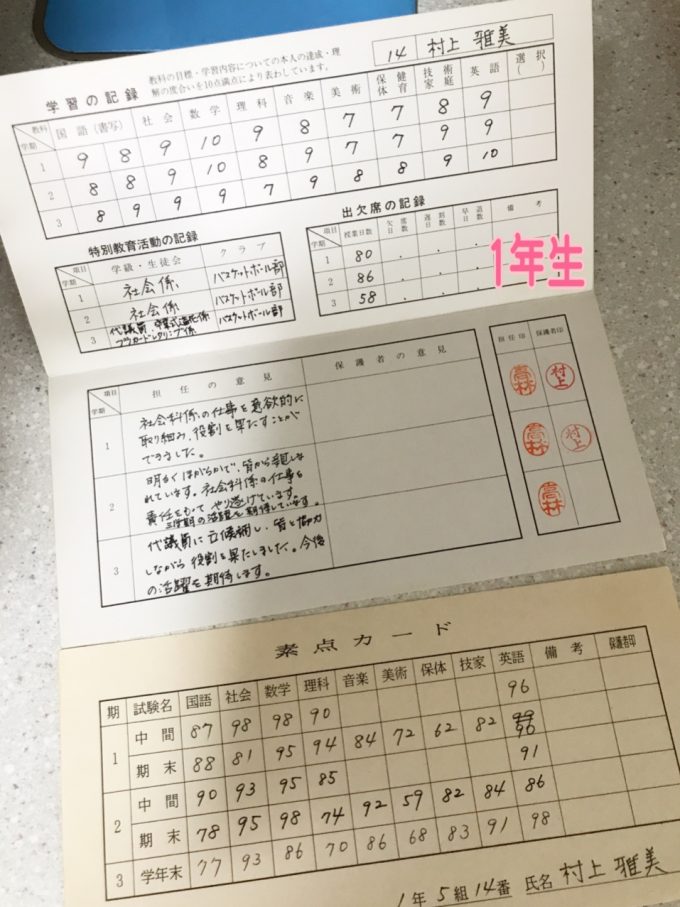 14 村上 雅美
学習の記録 教科の目標・学習内容についての本人の達成・理
解の度合いを10点満点により表わしています。
教科 学期 国語(書写) 社会 数学 理科 音楽 美術 保健体育 技術家庭 英語 選択( )
1 9 8 9 10 9 8 7 7 8 9
2 8 8 9 10 8 9 7 7 9 9
3 8 9 9 9 7 9 8 8 9 10
特別教育活動の記録
項目 学期 学級・生徒会 クラブ
1 社会係 バスケットボール部
2 社会係 バスケットボール部
3 代議員 卒業式 バスケットボール部
出欠席の記録
項目 学期 授業日数 欠席日数 遅刻日数 早退日数 備考
1 80 . . .
2 86 . . .
3 58 . . .
1年生
項目 学期 担任の意見 保護者の意見 担任印 保護者印
1 社会科係の仕事を意欲的に
取り組み、役割を果たすことが
できました。
高林 村上
2 明るくほがらかで、皆から親しま
れています。社会科係の仕事も
責任をもってやり遂げています。
三学期の活躍を期待しています。
高林 村上
3 代議員に立候補し、皆と協力
しながら役割を果たしました。今後
の活躍を期待します。
高林
素点カード
期 試験名 国語 社会 数学 理科 音楽 美術 保体 技家 英語 備考 保護者印
1 中間 87 98 98 90 96
期末 88 81 95 94 84 72 62 82 90
2 中間 90 93 95 85 91
期末 78 95 98 74 92 59 82 84 86
3 学年末 77 93 86 70 86 68 83 91 98
1年5組14番 氏名 村上 雅美